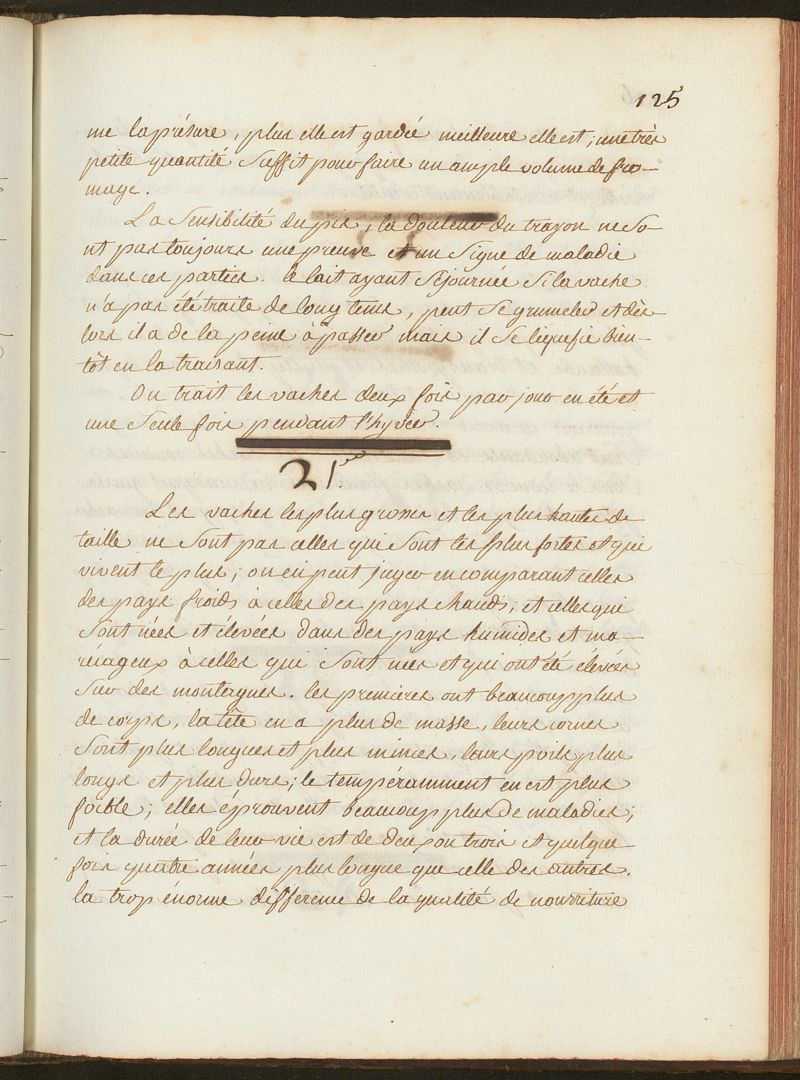 125
me la présure, plus elle est gardée meilleure elle est; une très
petite quantité suffit pour faire un ample volume de fro-
mage.
La sensibilité du pis, la douleur du trayon ne so-
nt pas toujours une preuve et un signe de maladie
dans ces parties. le lait ayant séjournée si la vache
n'a pas été traite de long tems, peut se grumeler et dès
lors il a de la peine à passer mais il se liquefie bien-
tôt en la traisant.
On trait les vaches deux fois par jour en été et
une seule fois pendant l'hyver.
21
Les vaches les plus grosses et les plus hautes de
taille ne sont pas celles qui sont les plus fortes et qui
vivent le plus; on en peut juger en comparant celles
des pays froids à celles des pays chauds, et celles qui
sont nées et élevées dans des pays humides et ma-
récageux à celles qui sont nées et qui ont été élevées
sur des montagnes. les premières ont beaucoup plus
de corps, la tête en a plus de masse, leurs cornes
sont plus longues et plus minces, leurs poils plus
longs et plus durs; le temperamment en est plus
foible; elles éprouvent beaucoup plus de maladies;
et la durée de leur vie est de deux ou trois et quelque
fois quatre années plus longue que celle des autres.
la trop énorme difference de la qualité de nourriture